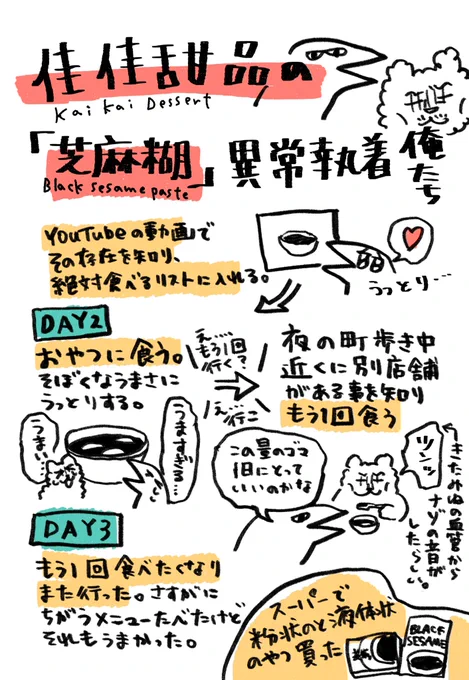 佳佳甜品の
Kai Kai Dessert
「芝麻糊」異常執着
Black sesame paste
俺たち
YouTubeの動画で
その存在を知り、
絶対食べるリストに入れる。
うっとり…
DAY2
おやつに食う。
そぼくなうまさに
うっとりする。
え…
もう1回
行く?
え…行こ
夜の町歩き中
近くに別店舗
がある事を知り
もう1回食う
うまい…
うますぎる…
この量のゴマ
1日にとって
いいのかな
ツンッ
←きたみぬの血管から
ナゾの音が
したらしい。
DAY3
もう1回食べたくなり
また行った。さすがに
ちがうメニューたべたけど
それもうまかった。
スーパーで
粉状のと液体状
のやつ買った
BLACK
SESAME